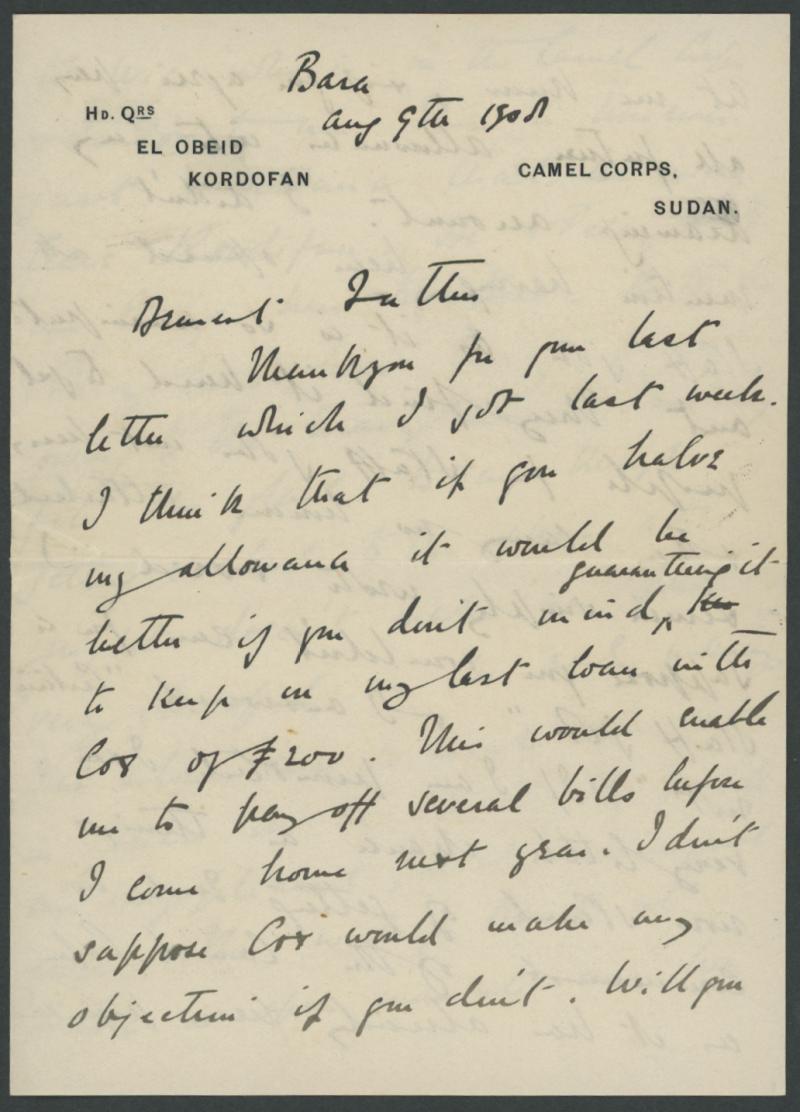 Bara
Aug 9th 1908
HD. QRS
EL OBEID
KORDOFAN
CAMEL CORPS,
SUDAN.
Dearest Father
Thank you for your last
letter which I got last week.
I think that if you halve
my allowance it would be
guaranteeing it
better if you don't mind,
to keep on my last loan with
Cox of £200. This would enable
me to pay off several bills before
I come home next year. I don't
suppose Cox would make any
objection if you don't. Will you